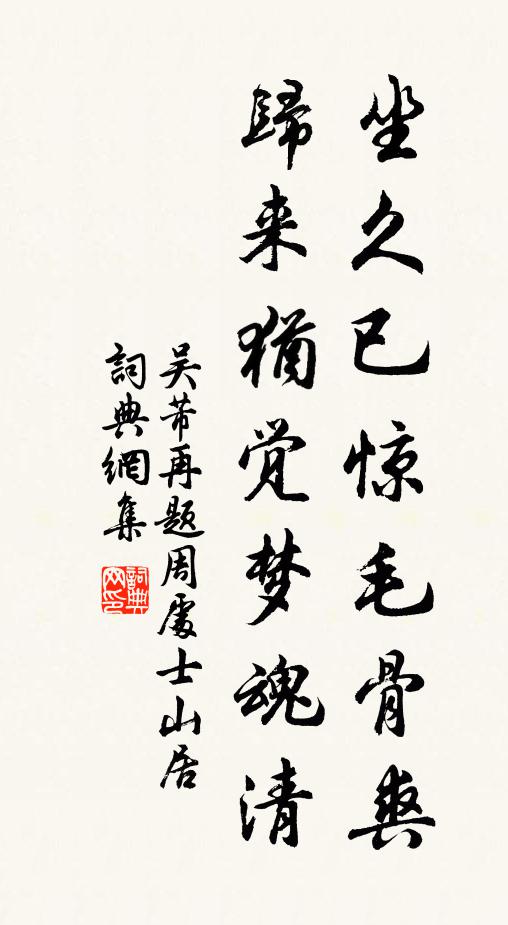 坐久已惊毛骨爽
歸来猶觉梦魂清
吴芾再题周處士山居
詞典網集
詞典
网印